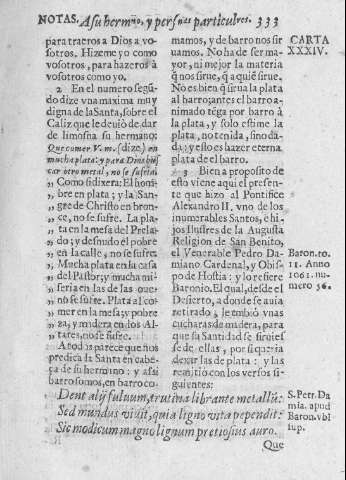 NOTAS. A su hermno, y persnas particulres. 333
para traeros a Dios a vo-
sotros. Hizeme yo como
vosotros, para hazeros à
vosotros como yo.
2 En el numero segũ-
do dize vna maxima muy
digna de la Santa, sobre el
Caliz que le deuio de dar
de limosna su hermano:
Que comer V. m. (dize) en
mucha plata: y para Dios buscar
car otro metal, no se sufria
„ Como si dixera: El hom-
„ bre en plata; y la San-
„ gre de Christo en bron-
„ ce, no se sufre. La pla-
„ ta en la mesa del Prela-
„ do; y desnudo el pobre
„ en la calle, no se sufre.
„ Mucha plata en la casa
„ del Pastor; y mucha mi-
„ seria en las de las oue-
„ no se sufre. Plata al co-
„ mer en la mesa; y pobre
„ za, y madera en los Al-
„ tares, no se sufre.
A todos parece que nos
predica la Santa en cabe-
ça de su hermano: y assi
barro somos, en barro co-
mamos, y de barro nos sir
uamos. No ha de ser ma-
yor, ni mejor la materia
q̃ nos sirue, q̃ a quiẽ sirue.
No es bien q̃ sirua la plata
al barro; antes el barro a-
nimado tẽga por barro à
la plata, y solo estime la
plata, no tenida, sino da-
da: y esto es hazer eterna
plata de el barro.
3 Bien a proposito de
esto viene aqui el presen-
te que hizo al Pontifice
Alexandro II, vno de los
inumerables Santos, è hi-
jos Ilustres de la Augusta
Religion de San Benito,
el Venerable Pedro Da-
miano Cardenal, y Obis-
po de Hostia: y lo refiere
Baronio. El qual, desde el
Desierto, a donde se auia
retirado, le embiò vnas
cucharas de madera, para
que sa Santidad se siruies
se de ellas, por si queria
dexar las de plata: y las
remitio con los versos si-
guientes:
CARTA
XXXIV.
Baron. to.
11. Anno
1061. nu-
mero 56.
Dent alij fuluum, trutina librante metallũ:
Sed mundus viuit, quia ligno vita pependit:
Sic modicum magno lignum pretiosius auro.
S. Petr. Da
mia. apud
Baron. vbi
sup.
Que